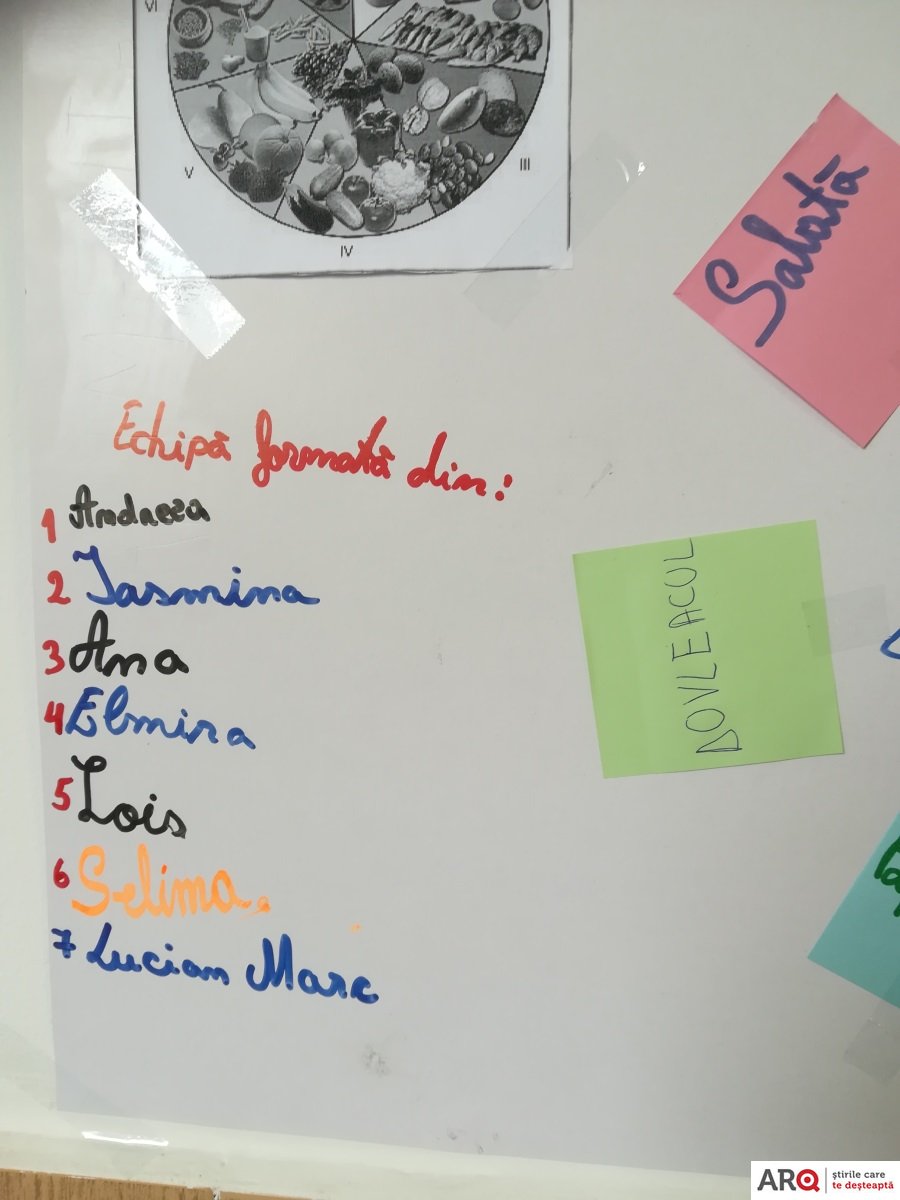 VI
V
III
IV
Salată
Echipă formată din:
1 Andreea
2 Iasmina
3 Ana
4 Elmira
5 Lois
6 Selima.
7 Lucian Marc
DOVLEACUL
ARQ știrile care
te deșteaptă